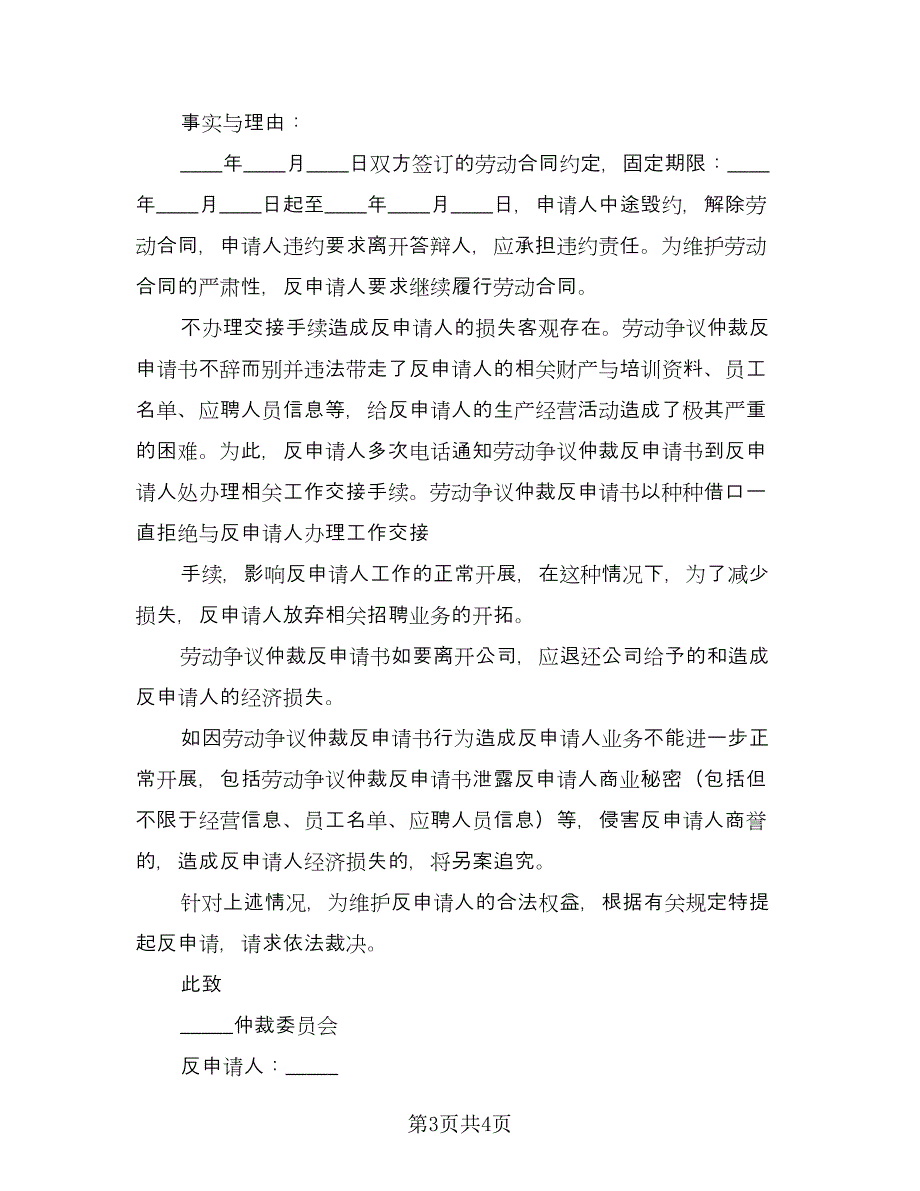 事实与理由：
____年____月____日双方签订的劳动合同约定，固定期限：____
年____月____日起至____年____月____日，申请人中途毁约，解除劳
动合同，申请人违约要求离开答辩人，应承担违约责任。为维护劳动
合同的严肃性，反申请人要求继续履行劳动合同。
不办理交接手续造成反申请人的损失客观存在。劳动争议仲裁反
申请书不辞而别并违法带走了反申请人的相关财产与培训资料、员工
名单、应聘人员信息等，给反申请人的生产经营活动造成了极其严重
的困难。为此，反申请人多次电话通知劳动争议仲裁反申请书到反申
请人处办理相关工作交接手续。劳动争议仲裁反申请书以种种借口一
直拒绝与反申请人办理工作交接
手续，影响反申请人工作的正常开展，在这种情况下，为了减少
损失，反申请人放弃相关招聘业务的开拓。
劳动争议仲裁反申请书如要离开公司，应退还公司给予的和造成
反申请人的经济损失。
如因劳动争议仲裁反申请书行为造成反申请人业务不能进一步正
常开展，包括劳动争议仲裁反申请书泄露反申请人商业秘密（包括但
不限于经营信息、员工名单、应聘人员信息）等，侵害反申请人商誉
的，造成反申请人经济损失的，将另案追究。
针对上述情况，为维护反申请人的合法权益，根据有关规定特提
起反申请，请求依法裁决。
此致
_____仲裁委员会
反申请人：_____
第3页共4页